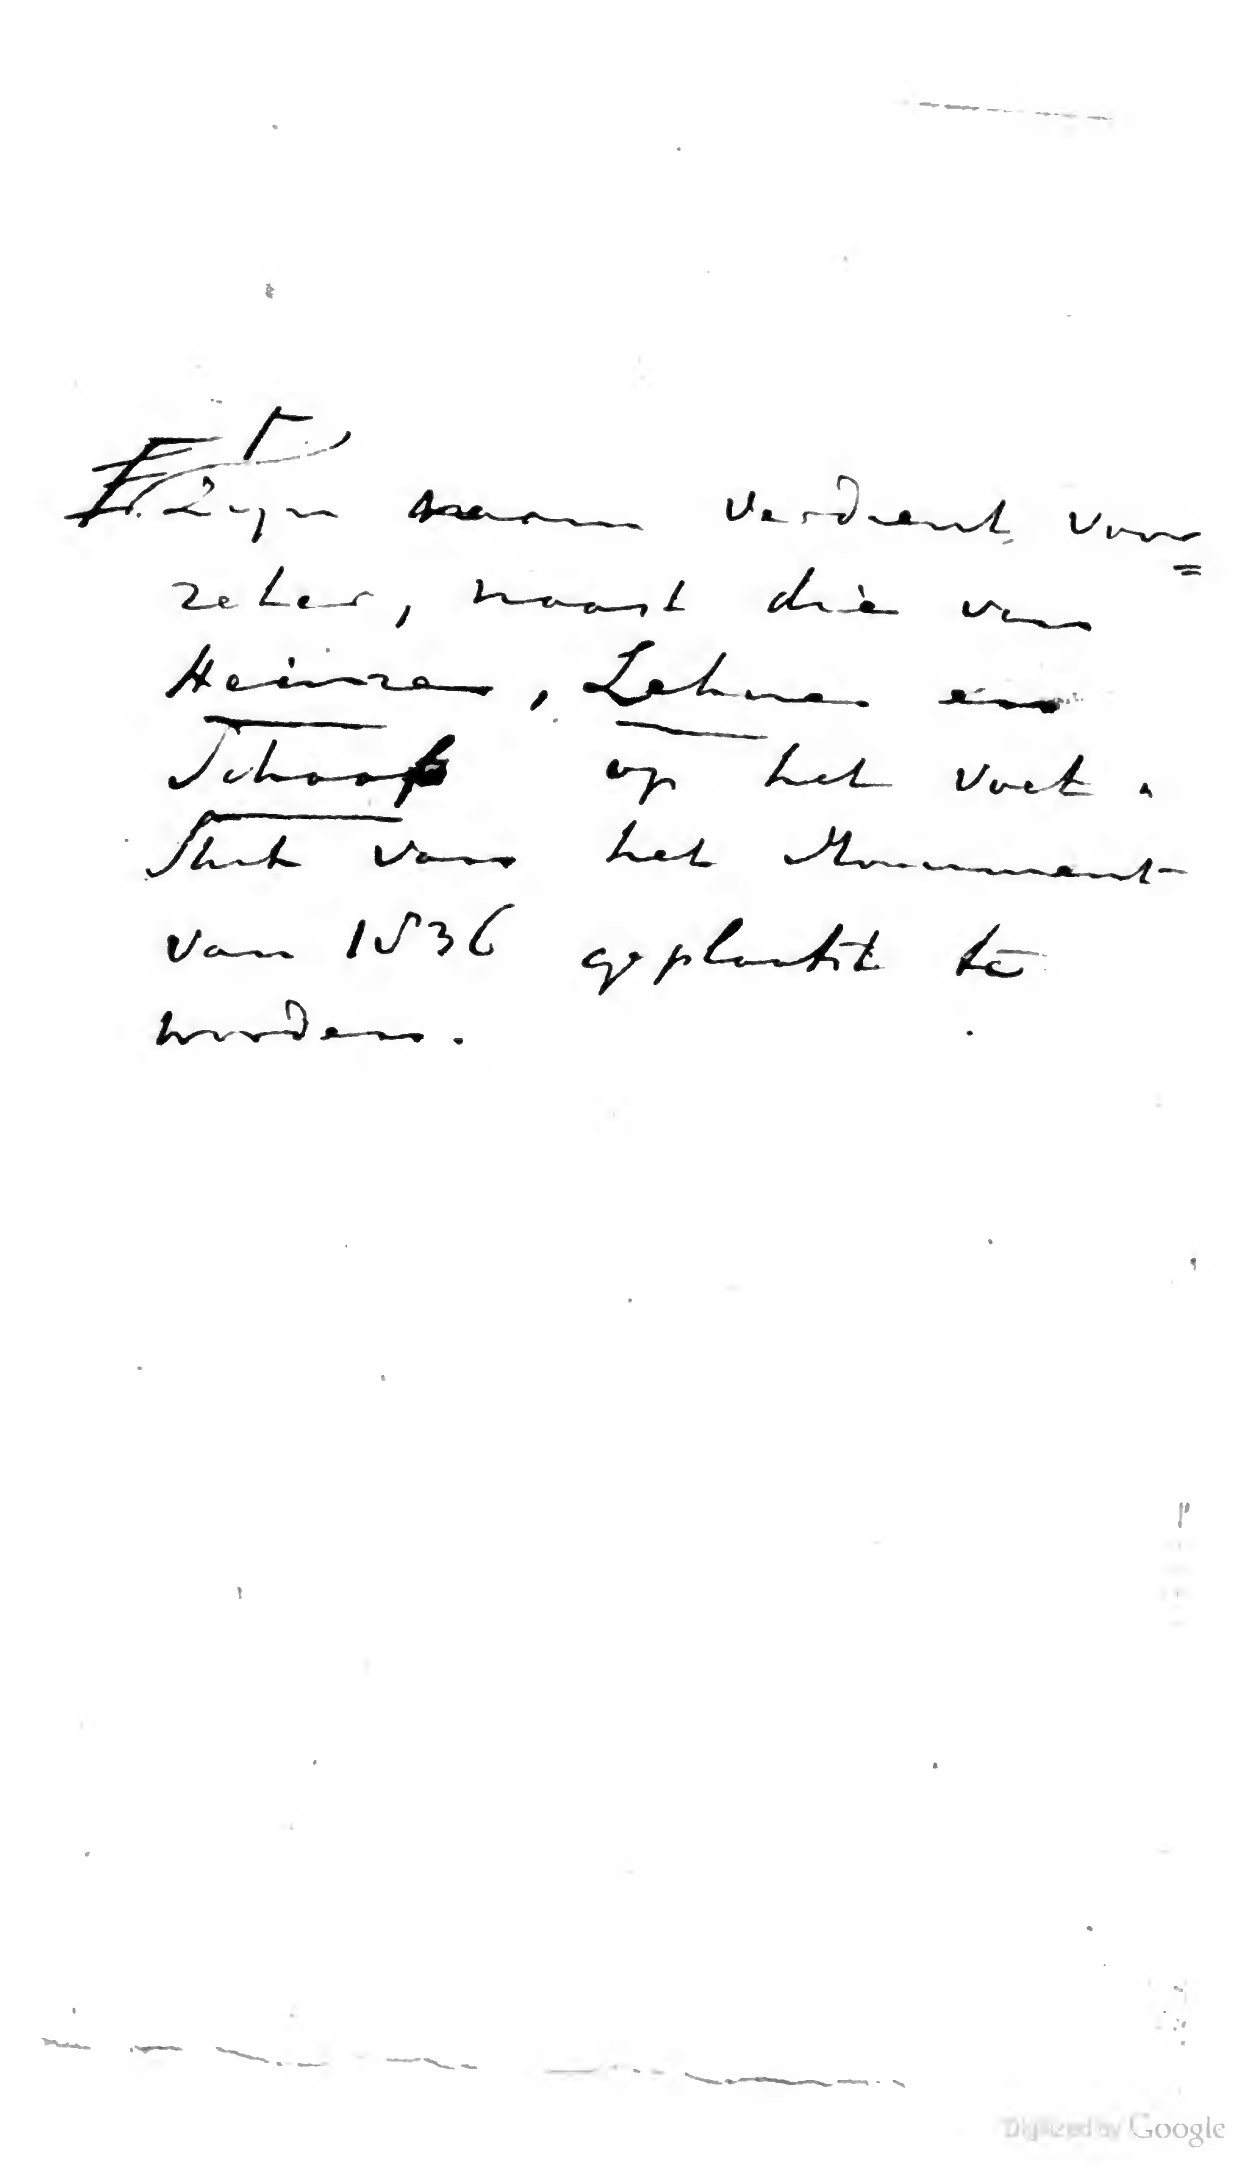 Zijn naam verdient voor=
zeker, naast die van
Heinze, Lehne en
Schaaf op het voet-
stuk van het Monument
van 1836 geplaatst te
worden.
Digitized by Google